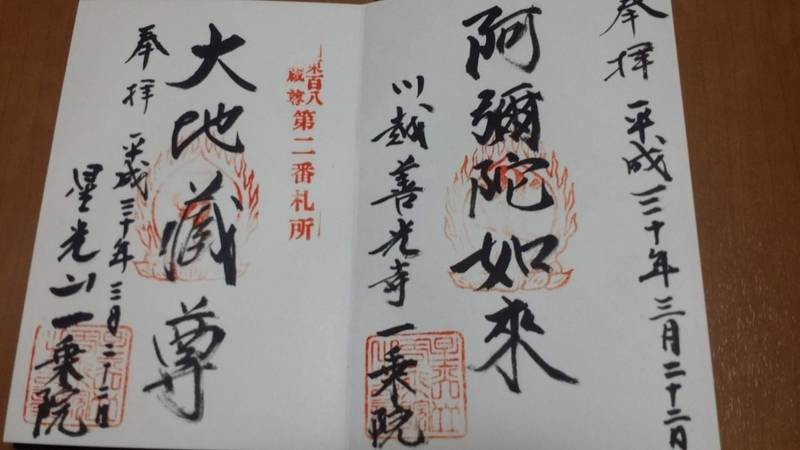 奉拝 平成三十年三月二十二日
阿彌陀如來
川越善光寺一乗院
東百八
蔵尊
第二番札所
大地蔵尊
奉拝 平成三十年三月二十二日
星光山一乗院